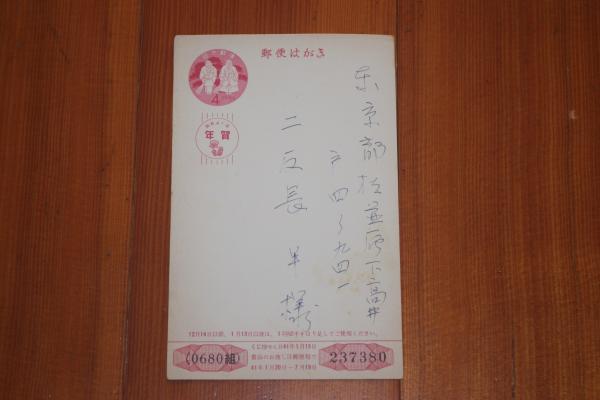 郵便はがき
4
年賀
東京都杉並區下高井
戸四ノ九四一
二反長 半 様
12月14日以前、1月13日以後は、1円切手をはり足してご使用ください。
(0680組)
くじ引せん日41年1月15日
賞品のお渡し日郵便局で
41年1月20日−7月19日
237380